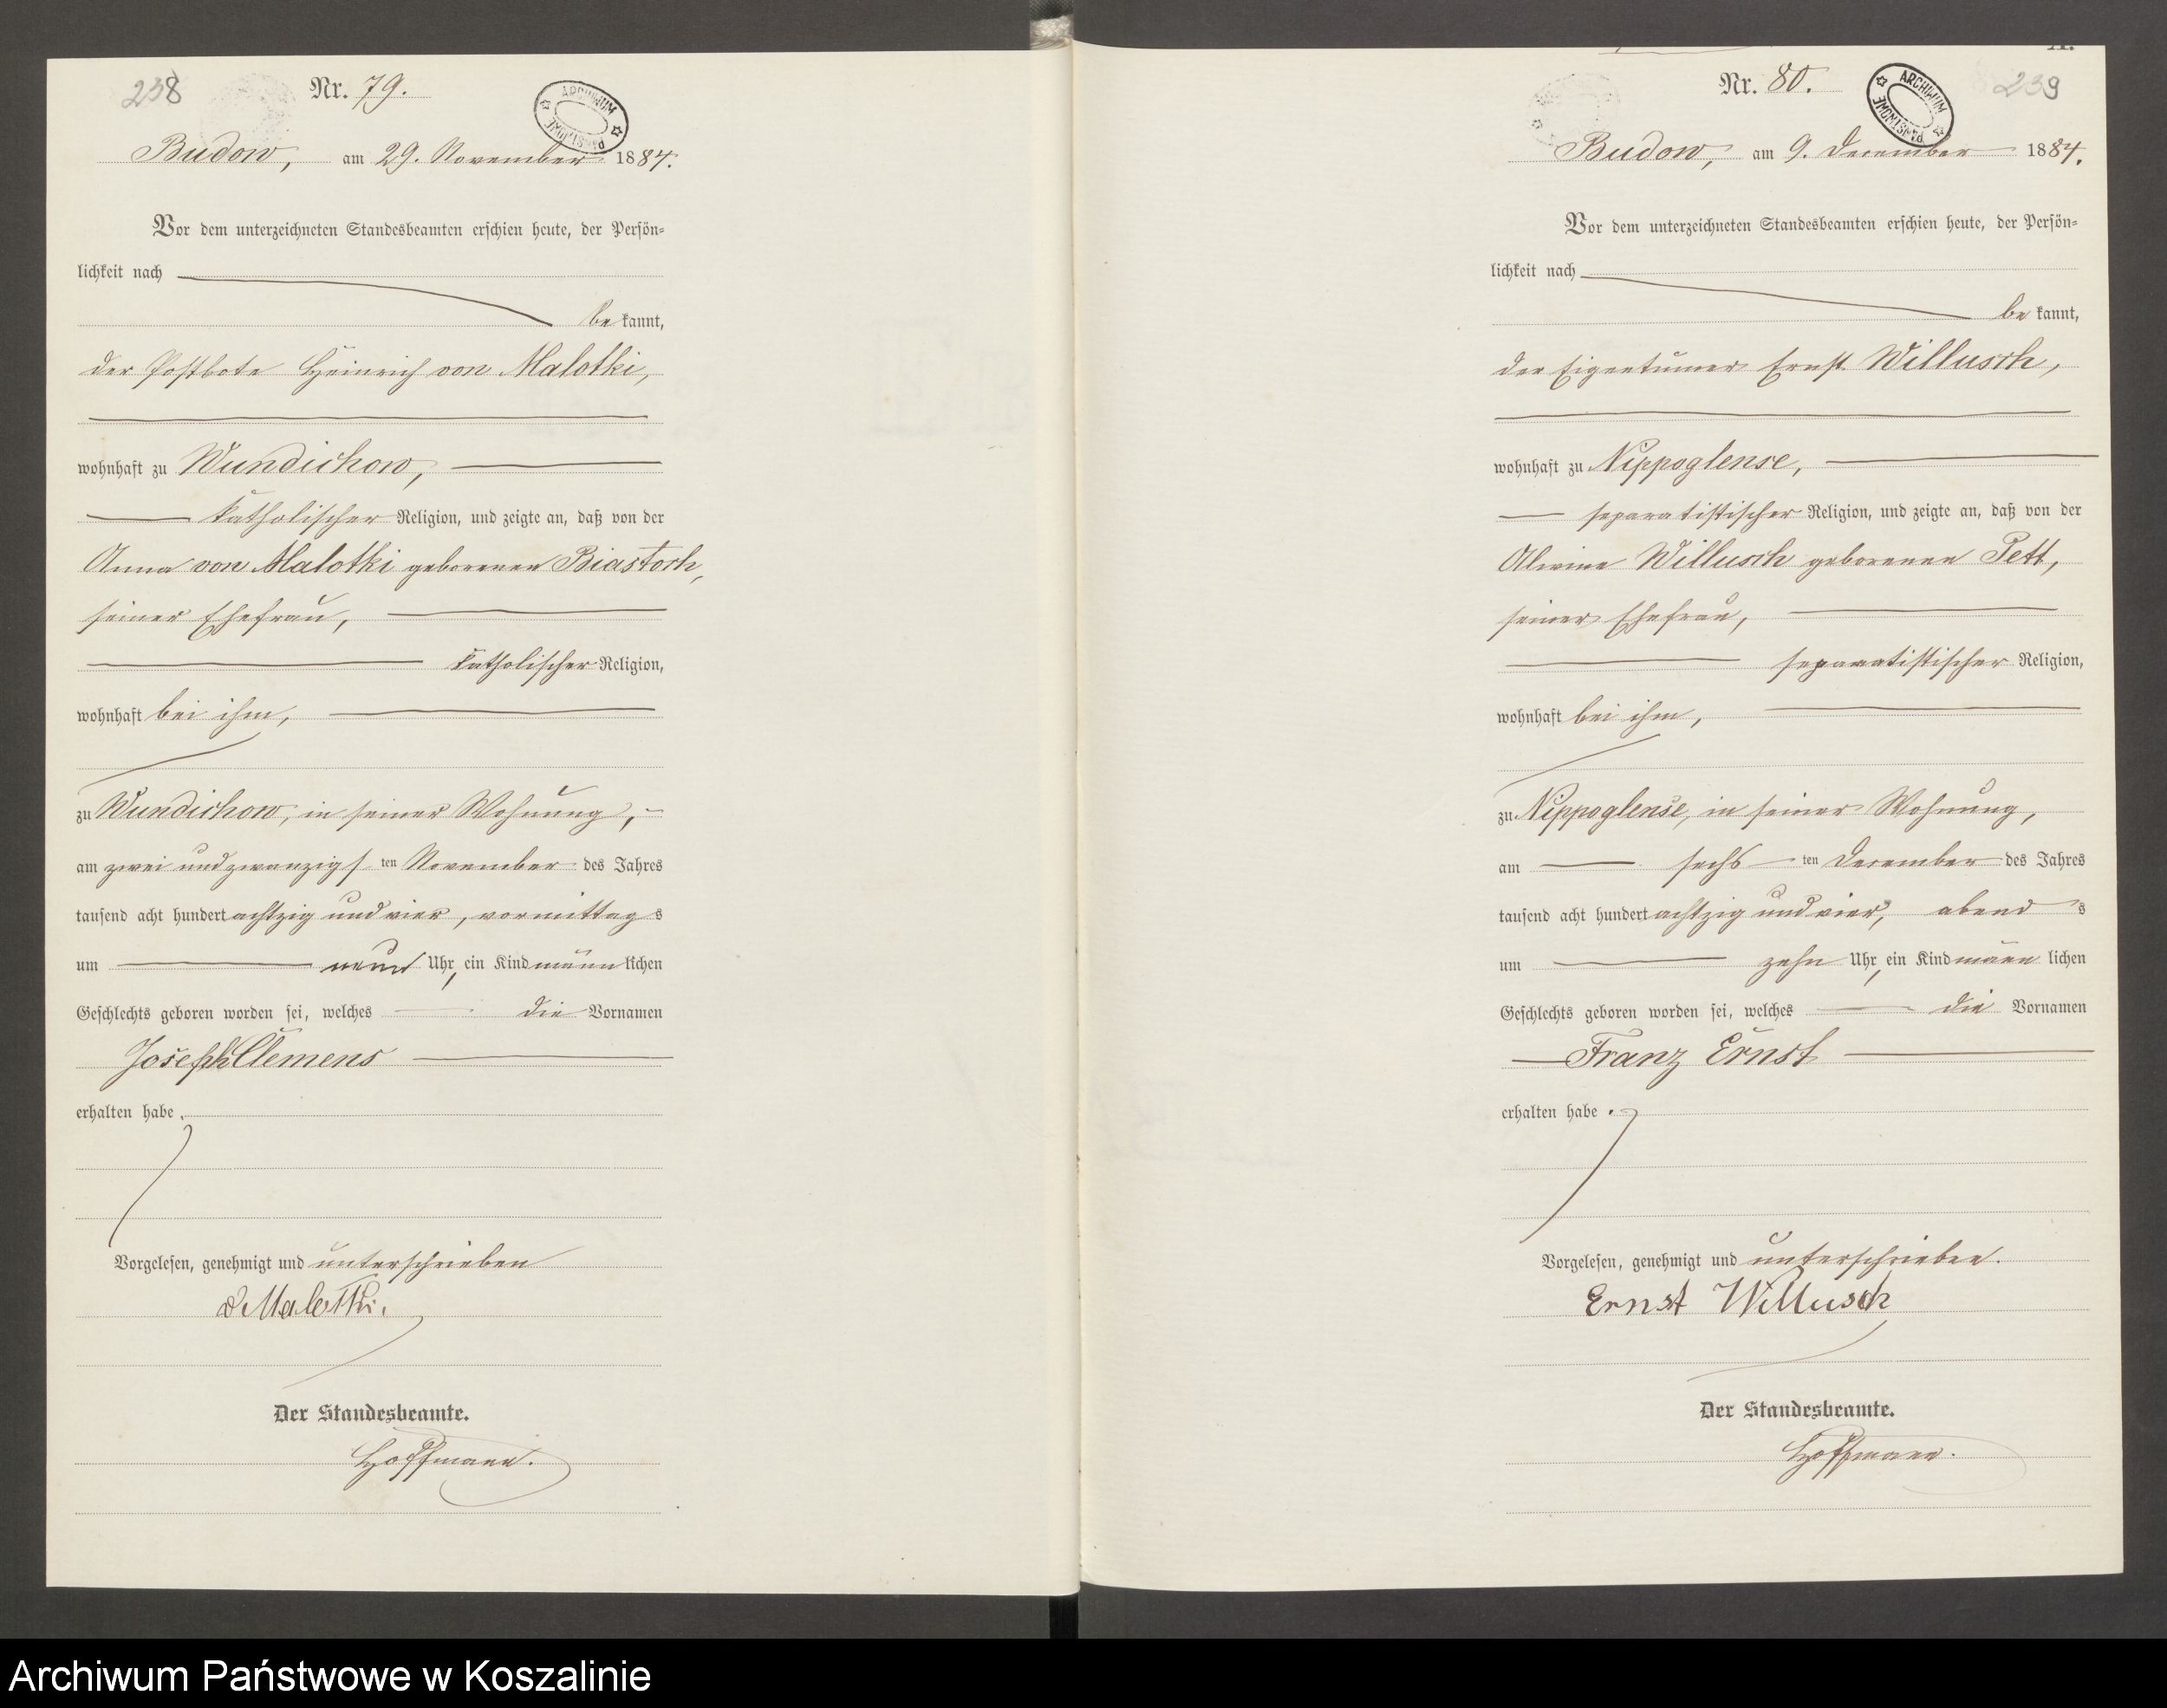 238
Nr. 79.
ARCHIWUM PAŃSTWOWE
Budow, am 29. November 1884.
Vor dem unterzeichneten Standesbeamten erschien heute, der Persön-
lichkeit nach
be kannt,
der Postbote Heinrich von Malotki,
wohnhaft zu Wundichow,
katholischer Religion, und zeigte an, daß von der
Anna von Malotki geborenen Biastoch,
seiner Ehefrau,
katholischer Religion,
wohnhaft bei ihm,
zu Wundichow, in seiner Wohnung,
am zwei und zwanzigs ten November des Jahres
tausend acht hundert achtzig und vier, vormittag s
um neun Uhr, ein Kind männ lichen
Geschlechts geboren worden sei, welches die Vornamen
Joseph Clemens
erhalten habe.
Vorgelesen, genehmigt und unterschrieben
v Malotki.
Der Standesbeamte.
Hoffmann.
239
Nr. 80.
ARCHIWUM PAŃSTWOWE
Budow, am 9. December 1884.
Vor dem unterzeichneten Standesbeamten erschien heute, der Persön-
lichkeit nach
be kannt,
der Eigentümer Ernst Willusch,
wohnhaft zu Nippoglense,
separatistischer Religion, und zeigte an, daß von der
Alwine Willusch geborenen Pett,
seiner Ehefrau,
separatistischer Religion,
wohnhaft bei ihm,
zu Nippoglense, in seiner Wohnung,
am sechs ten December des Jahres
tausend acht hundert achtzig und vier, abend s
um zehn Uhr, ein Kind männ lichen
Geschlechts geboren worden sei, welches die Vornamen
Franz Ernst
erhalten habe.
Vorgelesen, genehmigt und unterschrieben.
Ernst Willusch
Der Standesbeamte.
Hoffmann.
Archiwum Państwowe w Koszalinie